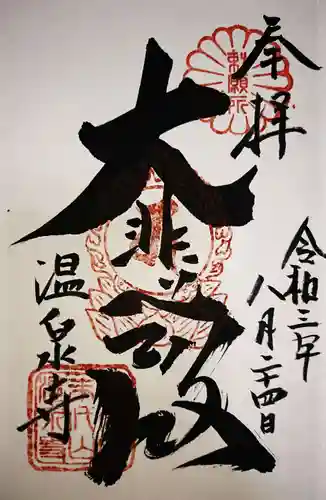 奉拝
勅願所
令和三年
八月二十四日
大悲殿
温泉寺